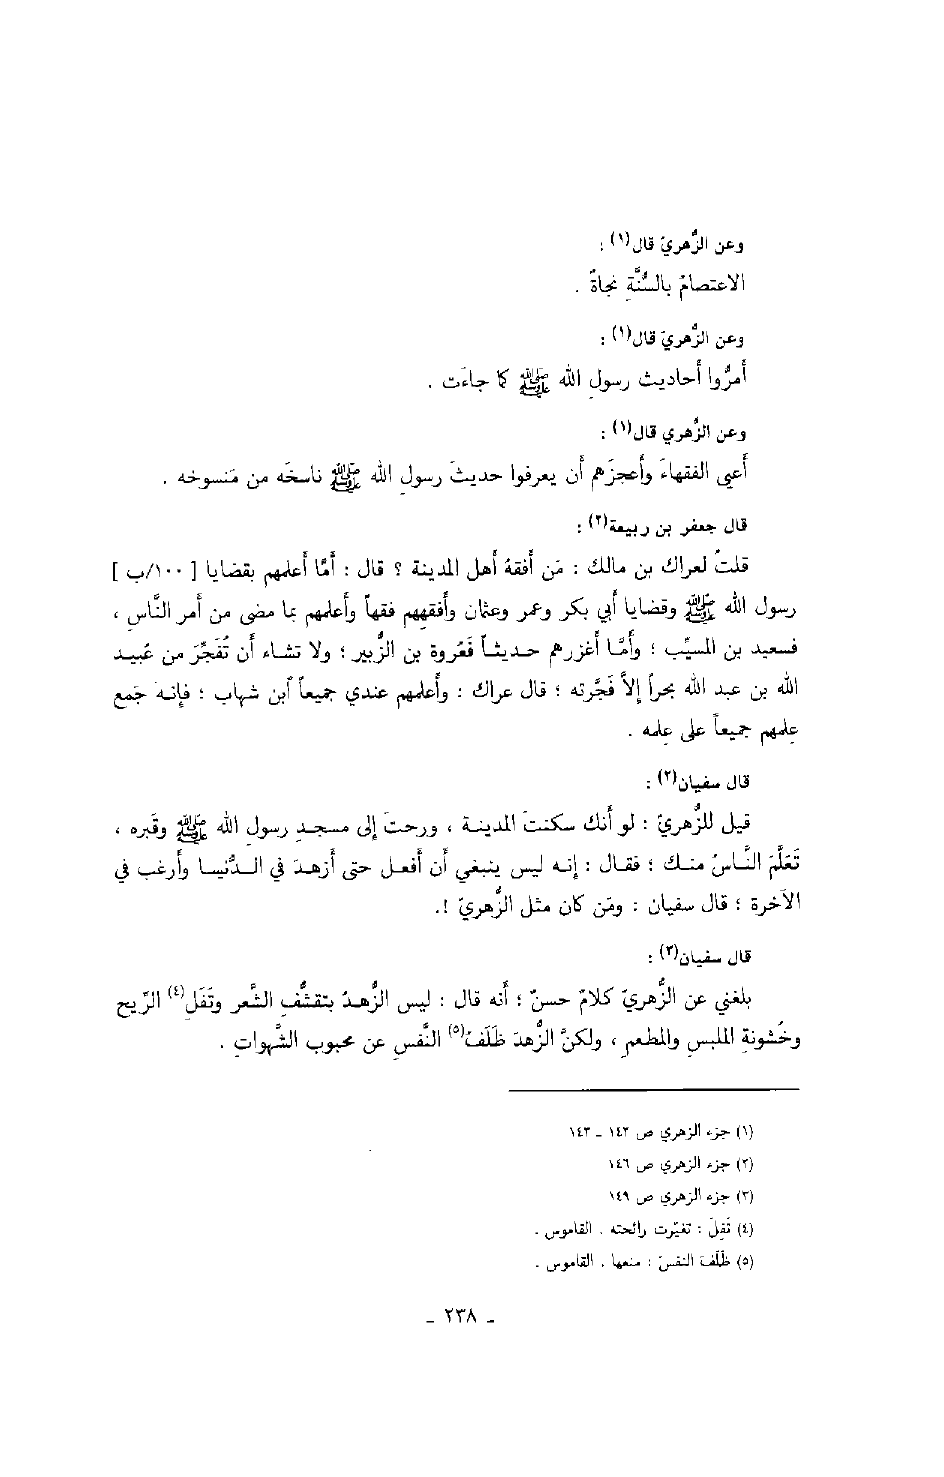 وعن الزُّهريّ قال(١) :
الاعتصامُ بالسُّنَّةِ نجاةٌ .
وعن الزُّهريّ قال(١) :
أَمِرُّوا أحاديث رسولِ الله ﷺ كما جاءَت .
وعن الزُّهري قال(١) :
أعيى الفقهاءَ وأعجزَهم أن يعرفوا حديثَ رسولِ الله ﷺ ناسخَه من مَنسوخه .
قال جعفر بن ربيعة(٢) :
قلتُ لعراك بن مالك : مَن أفقهُ أهل المدينة ؟ قال : أمَّا أعلمهم بقضايا [ ١٠٠/ب ]
رسول الله ﷺ وقضايا أبي بكر وعمر وعثمان وأفقههم فقهاً وأعلمهم بما مضى من أمر النَّاس ،
فسعيد بن المسيِّب ؛ وأمَّا أغزرهم حديثاً فعُروة بن الزُّبير ؛ ولا تشاء أن تُفَجِّرَ من عُبيد
الله بن عبد الله بحراً إلاَّ فَجَّرته ؛ قال عراك : وأعلمهم عندي جميعاً ابن شهاب ؛ فإنه جَمع
عِلمهم جميعاً على عِلمه .
قال سفيان(٢) :
قيل للزُّهريّ : لو أنك سكنتَ المدينة ، ورحتَ إلى مسجدِ رسولِ الله ﷺ وقَبره ،
تَعَلَّمَ النَّاسُ منك ؛ فقال : إنه ليس ينبغي أن أفعل حتى أزهدَ في الدُّنيا وأرغب في
الآخرة ؛ قال سفيان : ومَن كان مثل الزُّهريّ !.
قال سفيان(٣) :
بلغني عن الزُّهريّ كلامٌ حسنٌ ؛ أنه قال : ليس الزُّهدُ بتقشُّفِ الشَّعر وتَفَلِ(٤) الرِّيح
وخُشونةِ الملبسِ والمطعمِ ، ولكنَّ الزُّهدَ ظَلَفُ(٥) النَّفسِ عن محبوب الشَّهواتِ .
(١) جزء الزهري ص ١٤٢ ـ ١٤٣
(٢) جزء الزهري ص ١٤٦
(٣) جزء الزهري ص ١٤٩
(٤) تَفِلَ : تغيّرت رائحته . القاموس .
(٥) ظَلَفَ النفسَ : منعها . القاموس .
ـ ٢٣٨ ـ